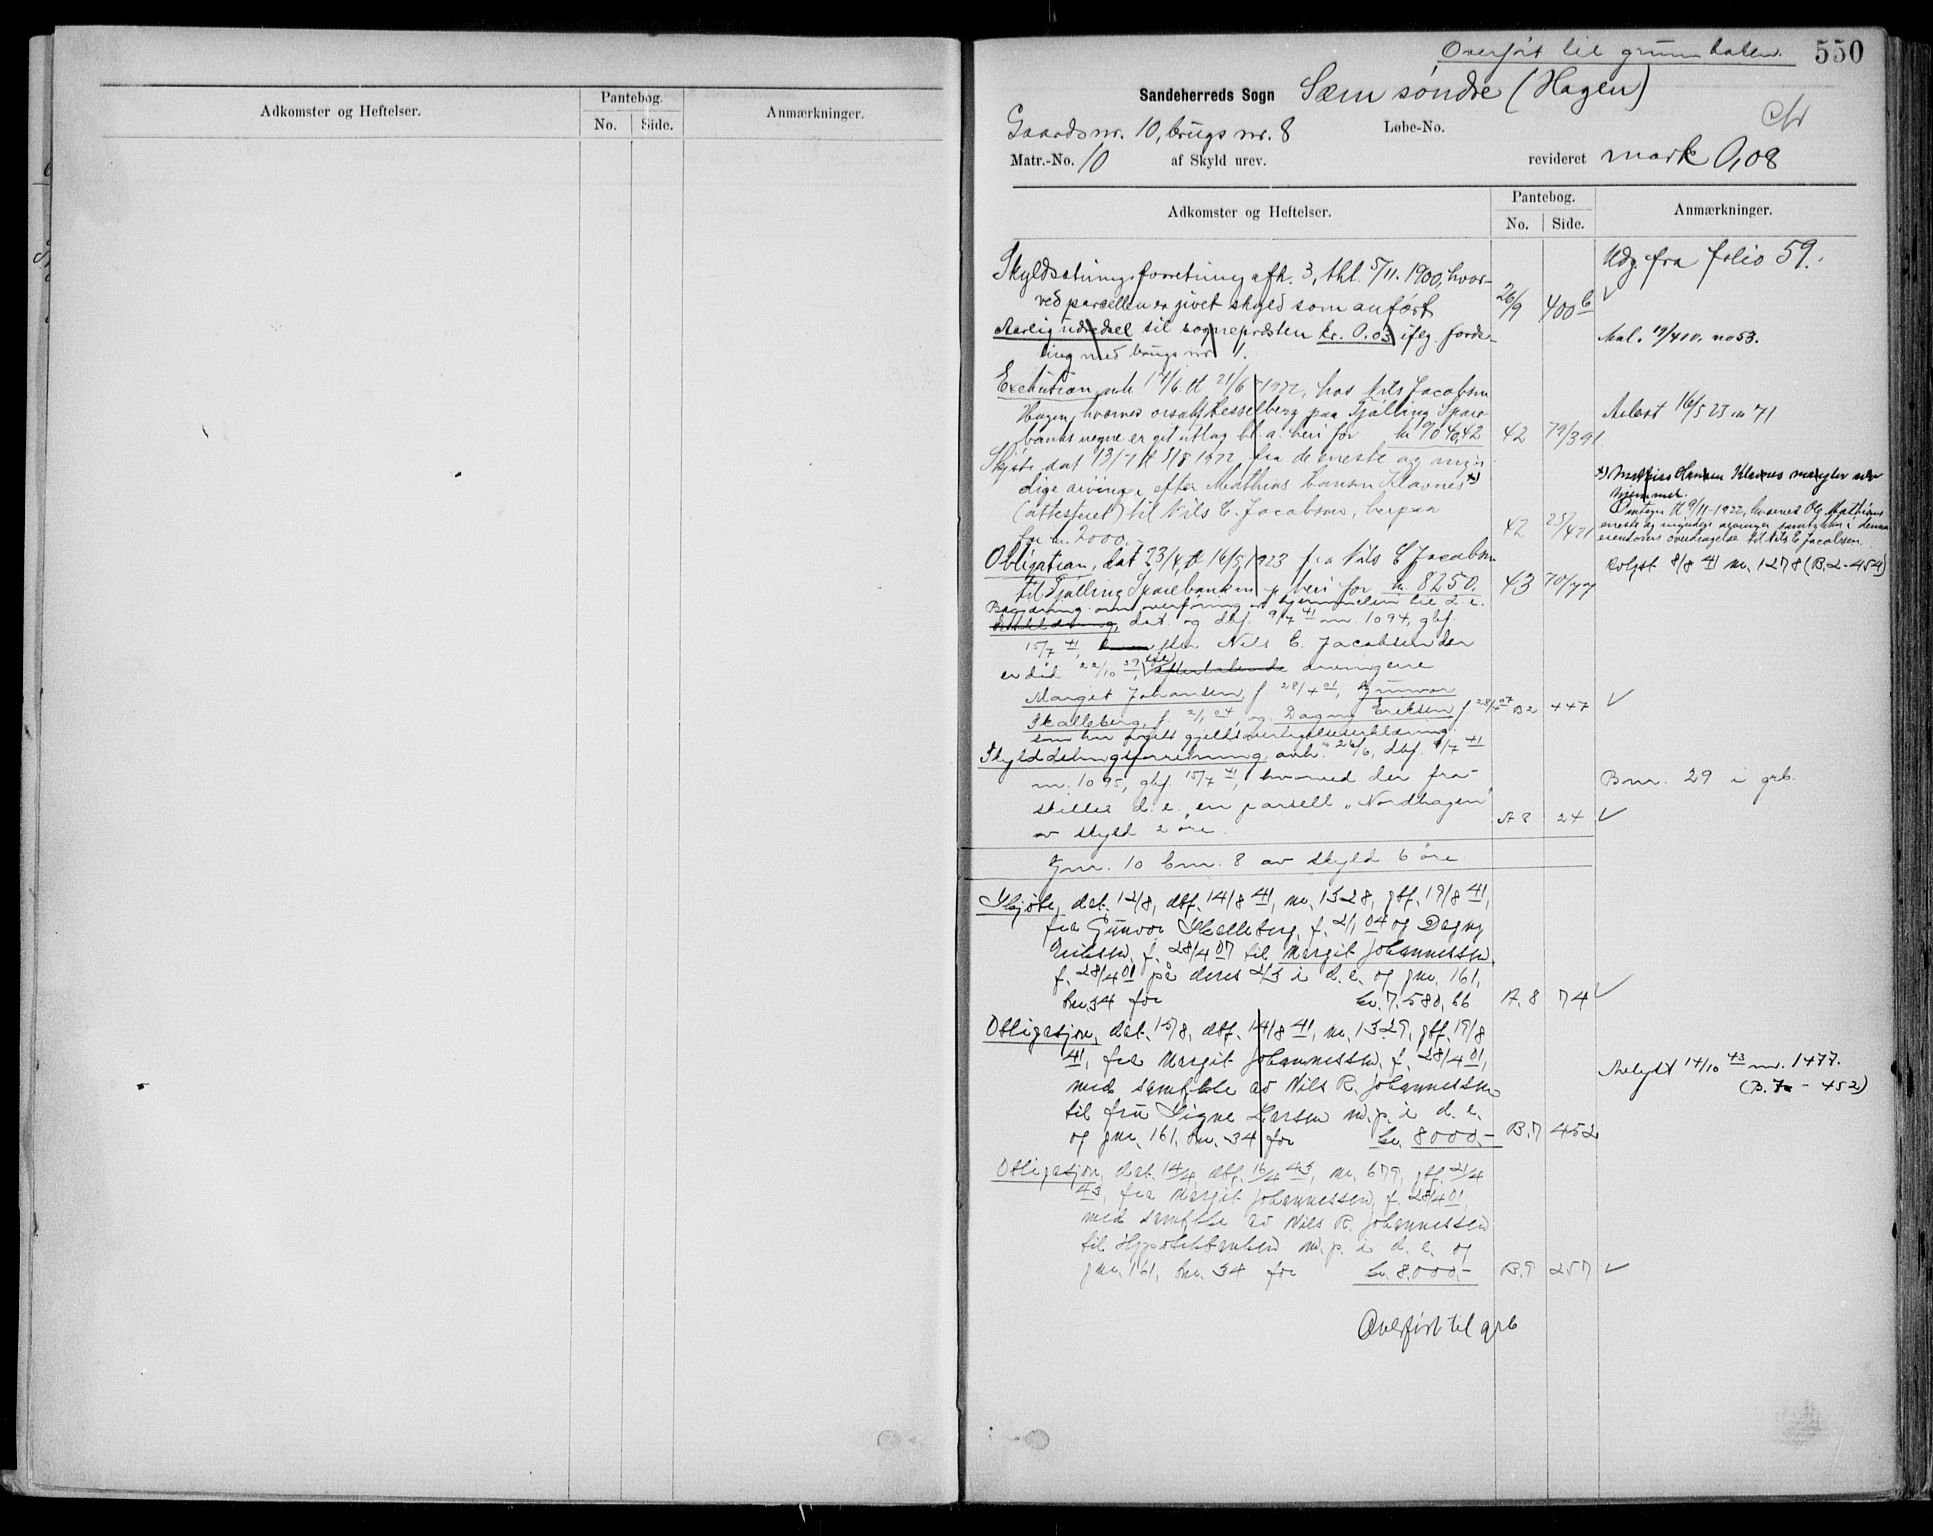 Adkomster og Heftelser.
Pantebog.
No. Side.
Anmærkninger.
Overført til grunnboken.
550
Sandeherreds Sogn Sæm søndre (Hagen)
Gaardsnr. 10, brugs nr. 8
Løbe-No.
Matr.-No. 10 af Skyld urev. revideret mark 0,08
Adkomster og Heftelser.
Pantebog.
No. Side.
Anmærkninger.
Skyldsætningsforretning afh. 3, thl. 5/11. 1900, hvor-
ved parcellen er givet skyld som anført 26/9 400b
Udg. fra folio 59.
Aarlig udredsel til sognepræsten kr. 0.03 iflg. forde-
ling med brugs nr 1.
no 53.
Execution avh 14/6 tl 21/6 1922, hos Nils Jacobsen
Hagen, hvorved Tjølling Spare-
banks vegne er git utlæg bl. a. heri for kr 9040,42 42 79/391.
Avlest 16/5 23 no 71
Skjøte dat 13/7 tl 8/8 1922 fra de eneste og myn-
dige arvinger efter Mathias Hansen Klavnes x)
(attesteret) til Nils E. Jacobsen, herpaa
for kr. 2000.- 42 25/421
x) Mathias Hansen Klavnes mangler
hjemmel.
9/11-1922, hvorved
eneste og myndige arvinger samtykker i denne
eiendoms overdragelse til Nils E Jacobsen.
Obligation, dat 23/4, tl 16/5 1923 fra Nils E Jacobsen
til Tjølling Sparebank m p heri for kr. 8250. 43 70/77
Avlyst 8/8 41 nr. 1278 (B.2-454)
Begjæring om overføring av hjemmelen til d. e.
dat. og dbf. 9/7 41 nr. 1094, gbf.
15/7 41, efter Nils E. Jacobsen der
er død 22/10 39, til arvingene
Margit Johansen, f 28/4 01, Gunvor
Skalleberg, f. 2/1 04 og Dagny Eriksen f 28/4 07 B2 447
som har avgitt gjeldsovertagelseserklæring.
Skylddelingsforretning, avh. 26/6, dbf. 9/7 41
nr. 1095, gbf. 15/7 41, hvorved der fra-
skilles d. e. en parsell "Nordhagen"
av skyld 2 øre. A 8 24
Bnr. 29 i grb.
Gnr. 10 bnr. 8 av skyld 6 øre
Skjøte, dat. 12/8, dbf. 14/8 41, nr. 1328, gbf. 19/8 41,
fra Gunvor Skalleberg, f. 2/1 04 og Dagny
Eriksen, f. 28/4 07 til Margit Johannessen,
f. 28/4 01 på deres 2/3 i d. e. og gnr. 161,
bnr. 34 for kr. 7.580,66 A. 8 74
Obligasjon, dat. 15/8, dbf. 14/8 41, nr. 1329, gbf. 19/8
41, fra Margit Johannessen, f. 28/4 01,
med samtykke av Nils R. Johannessen
til fru Signe Larsen m. p. i d. e.
og gnr. 161, bnr. 34 for kr. 8000.- B. 7 452
Avlyst 14/10 43 nr. 1477.
(B. 7 - 452)
Obligasjon, dat. 14/4, dbf. 16/4 43, nr. 679, gbf. 21/4
43, fra Margit Johannessen, f. 28/4 01,
med samtykke av Nils R. Johannessen
til Hypotekbanken m. p. i d. e. og
gnr. 161, bnr. 34 for kr. 8.000.- B. 9 257
Overført til grb